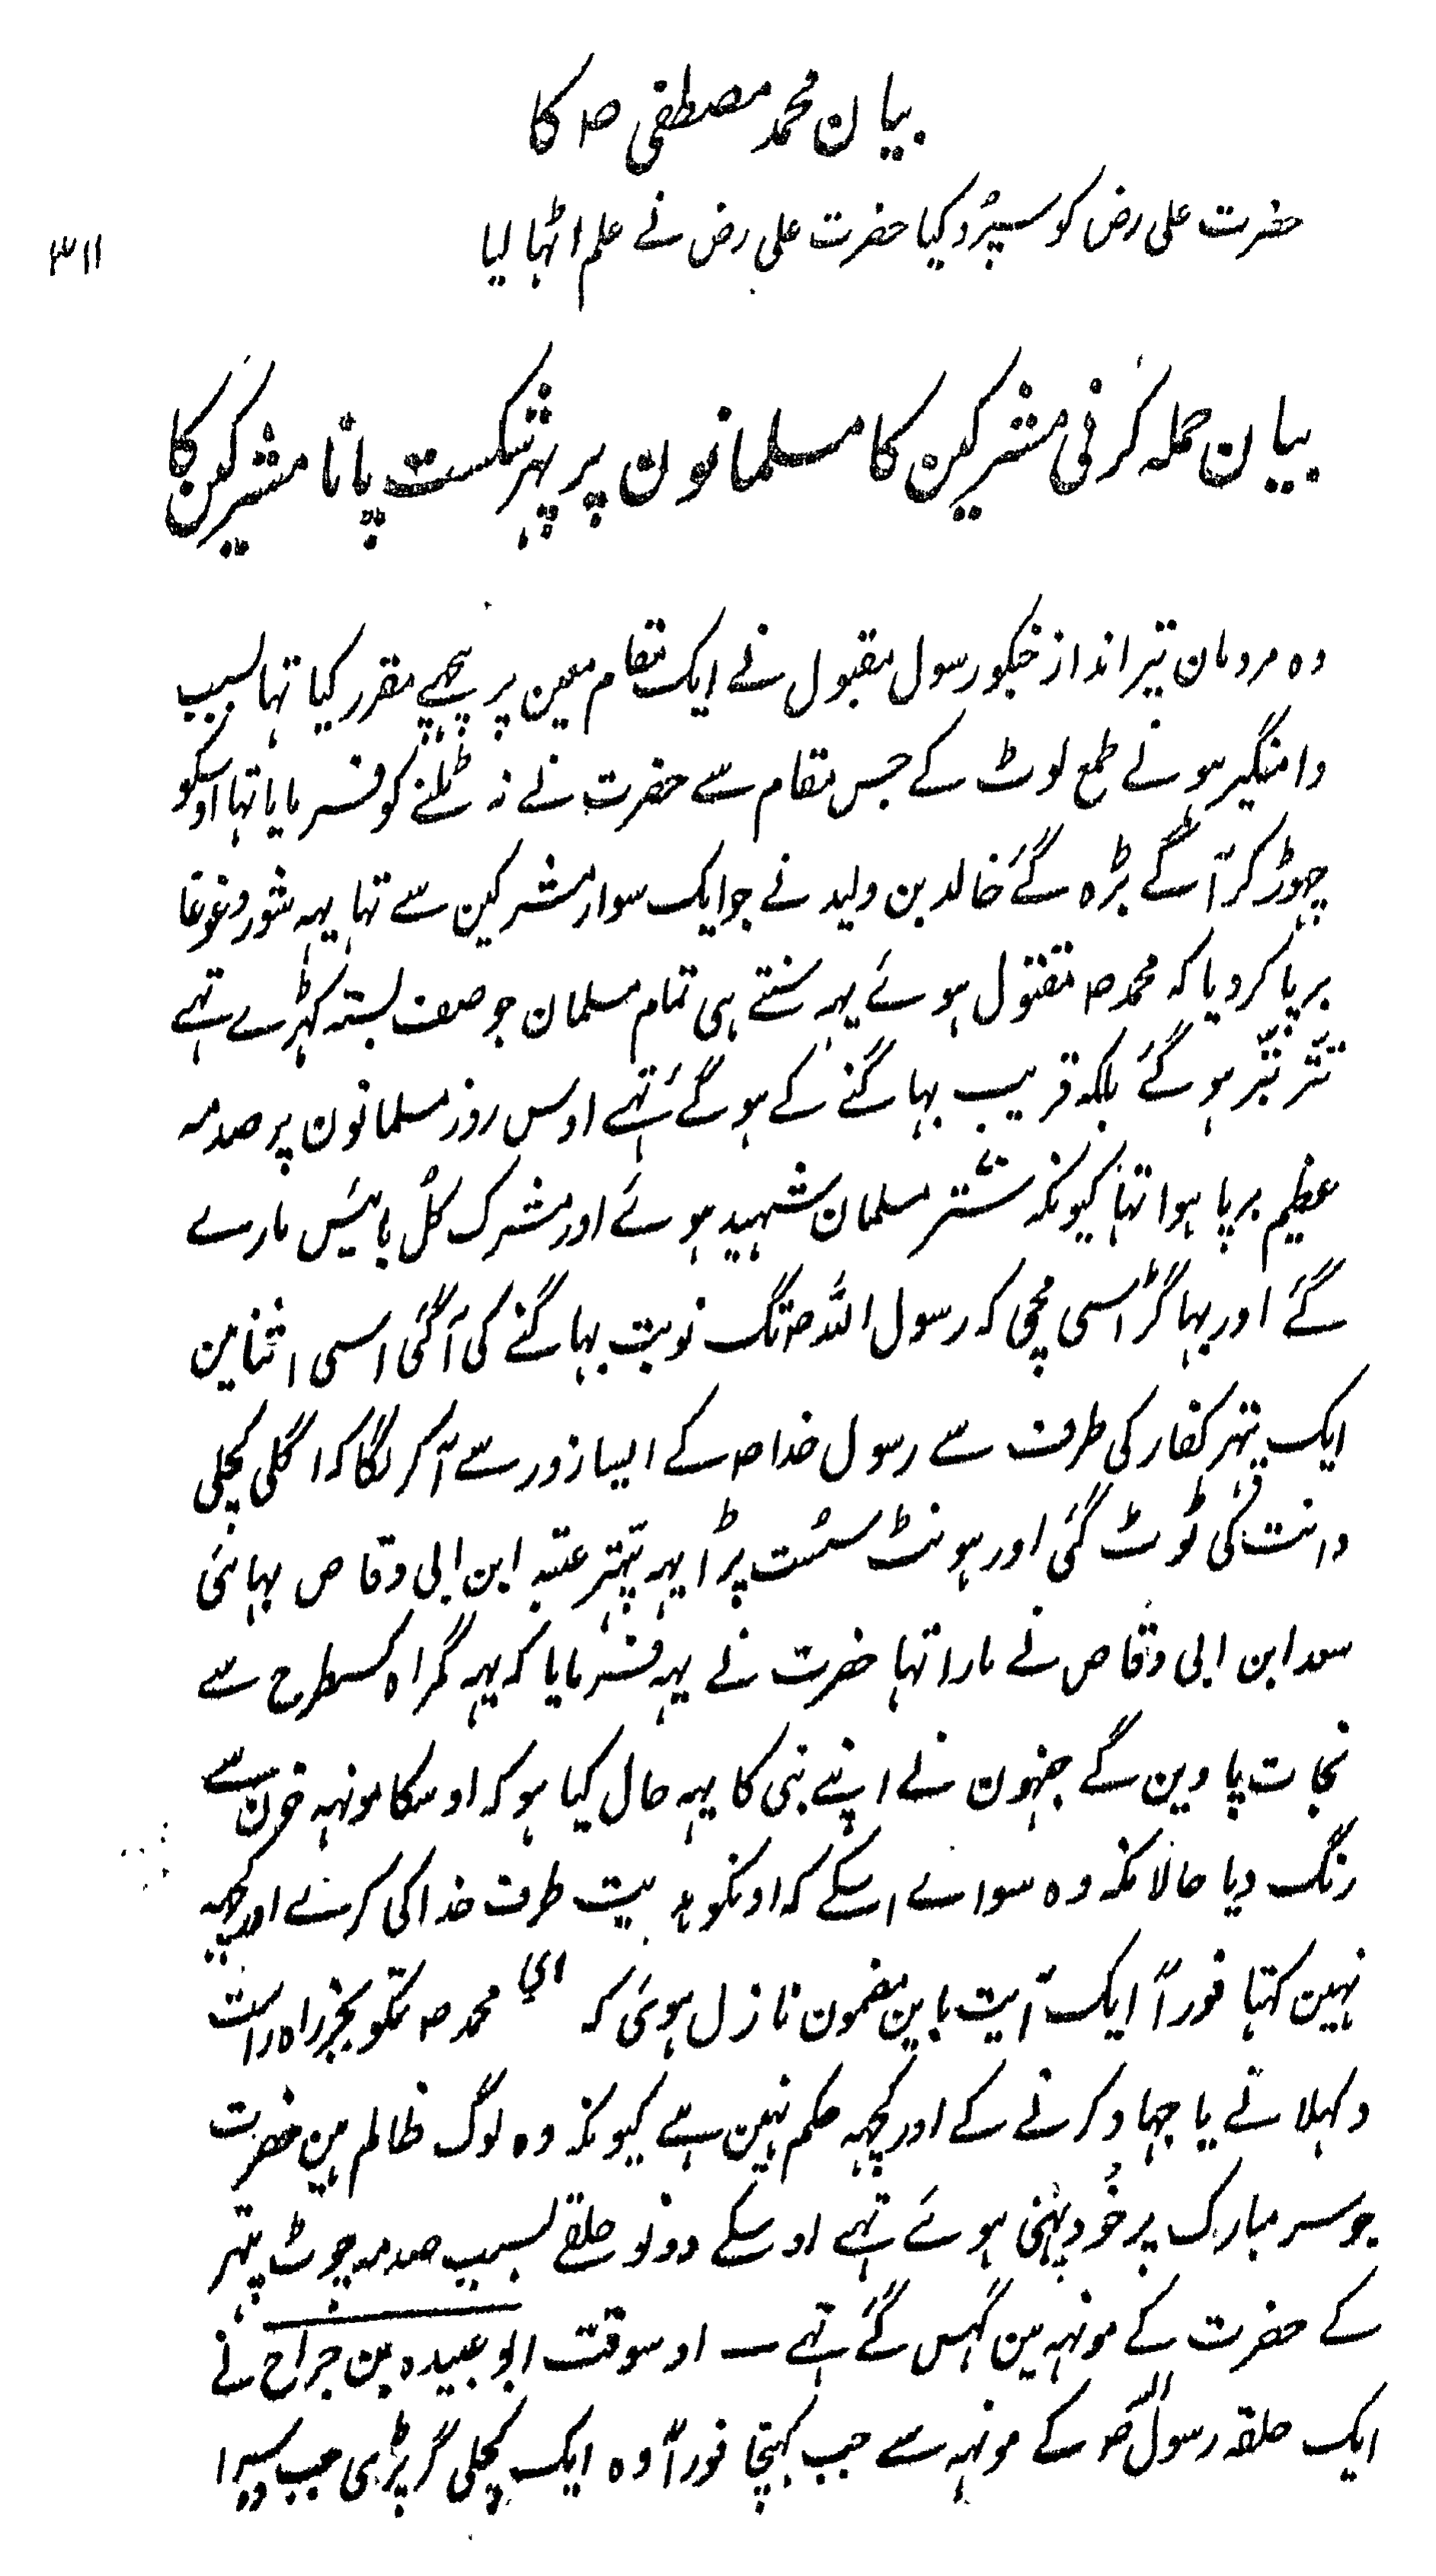 بیان محمد مصطفی ص کا
حضرت علی رض کو سپُرد کیا حضرت علی رض نے علم اٹہا لیا
۳۱۱
بیان حملہ کرنی مشرکین کا مسلمانون پر پہر شکست پانا مشرکین کا
وہ مردمان تیر انداز جنکو رسول مقبول نے ایک مقام معین پر پیچہے مقرر کیا تہا بسبب
دامنگیر ہونے طمع لوٹ کے جس مقام سے حضرت نے نہ ٹلنے کو فرمایا تہا اوسکو
چہوڑ کر آگے بڑہ گئے خالد بن ولید نے جو ایک سوار مشرکین سے تہا یہہ شور و غوغا
برپا کر دیا کہ محمد ص مقتول ہوئے یہہ سنتے ہی تمام مسلمان جو صف بستہ کہڑے تہے
تتّر بتّر ہو گئے بلکہ قریب بہاگنے کے ہو گئے تہے اوس روز مسلمانون پر صدمہ
عظیم برپا ہوا تہا کیونکہ ستّر مسلمان شہید ہوئے اور مشرک کل بائیس مارے
گئے اور بہاگڑ اسی مچی کہ رسول اللہ ص تک نوبت بہاگنے کی آگئی اسی اثنا مین
ایک پتہر کفار کی طرف سے رسول خدا ص کے ایسا زور سے آکر لگا کہ اگلی کچلی
دانت کی ٹوٹ گئی اور ہونٹ سُست پڑا یہہ پتّہر عتبہ ابن ابی وقاص بہائی
سعد ابن ابی وقاص نے مارا تہا حضرت نے یہہ فرمایا کہ یہہ گمراہ کسطرح سے
نجات پاوین گے جنہون نے اپنے نبی کا یہہ حال کیا ہو کہ اوسکا مونہہ خون سے
رنگ دیا حالانکہ وہ سوائے اسکے کہ اونکو ہدایت طرف خدا کی کرے اور کچہہ
نہین کہتا فوراً ایک آیت باین مضمون نازل ہوئی کہ ای محمد ص تمکو بجز راہ راست
دکہلانے یا جہاد کرنے کے اور کچہہ حکم نہین ہے کیونکہ وہ لوگ ظالم ہین حضرت
جو سر مبارک پر خُود پہنی ہوئے تہے اوسکے دونو حلقے بسبب صدمہ چوٹ پتہر
کے حضرت کے مونہہ مین گہس گئے تہے — اوسوقت ابو عبیدہ بن جراح نے
ایک حلقہ رسول اللہ ص کے مونہہ سے جب کہینچا فوراً وہ ایک کچلی گر پڑی جب دوسرا